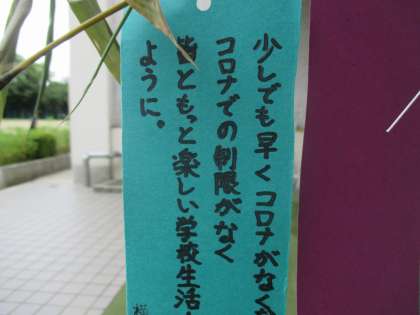 少しでも早くコロナがなくな
コロナでの制限がなく
皆ともっと楽しい学校生活
ように。